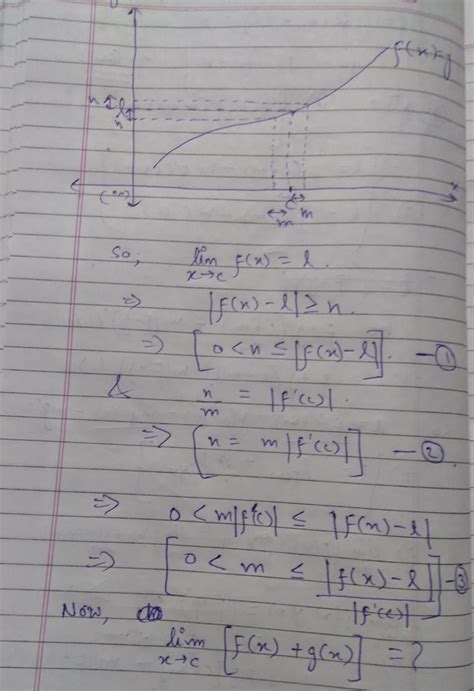 f(x)=y
n
l
n
x
(0,0)
c
m
m
So, lim x→c f(x) = l.
⇒ |f(x) - l| ≥ n.
⇒ [0 < n ≤ |f(x) - l|]. - ①
& n/m = |f'(c)|.
⇒ [n = m |f'(c)|] - ②
⇒ 0 < m|f'(c)| ≤ |f(x) - l|
⇒ [0 < m ≤ |f(x) - l| / |f'(c)|] - ③
Now, lim x→c [f(x) + g(x)] = ?